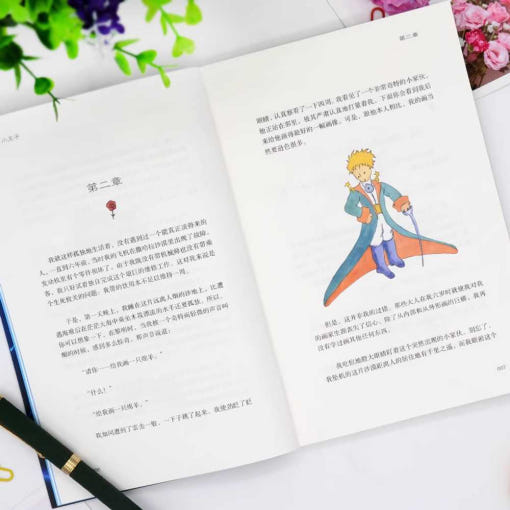 小王子
第二章
我就这样孤独地生活着，没有遇到过一个能真正谈得来的
人。一直到六年前，当时我的飞机在撒哈拉沙漠里出现了故障，
发动机里有个零件损坏了。由于我既没有带机械师也没有带乘
客，我只好试着独自完成这个艰巨的维修工作。这对我来说是
个生死攸关的问题。我带的饮用水不足以维持一周。
于是，第一天晚上，我睡在这片远离人烟的沙地上，比遭
遇海难后在茫茫大海中乘坐木筏漂流的水手还要孤独。所以，
你可以想象一下，在黎明时，当我被一个奇特而轻微的声音叫
醒的时候，感到多么惊奇。那声音说道：
“请你……给我画一只绵羊。”
“什么！”
“给我画一只绵羊。”
我如同遭到了雷击一般，一下子跳了起来。我使劲眨了眨
第二章
眼睛，认真察看了一下四周。我看见了一个非常奇特的小家伙，
他正站在那里，极其严肃认真地打量着我。下面你会看到我后
来给他画得最好的一幅画像。可是，跟他本人相比，我的画当
然要逊色很多。
但是，这并非我的过错。那些大人在我六岁时就使我对我
的画家生涯丧失了信心。除了从内部和从外形画的巨蟒，我再
没有学过画其他任何东西。
我吃惊地瞪大眼睛盯着这个突然出现的小家伙。别忘了，
我坠机的这片沙漠距离人的居住地有千里之遥。而我眼前这个
007